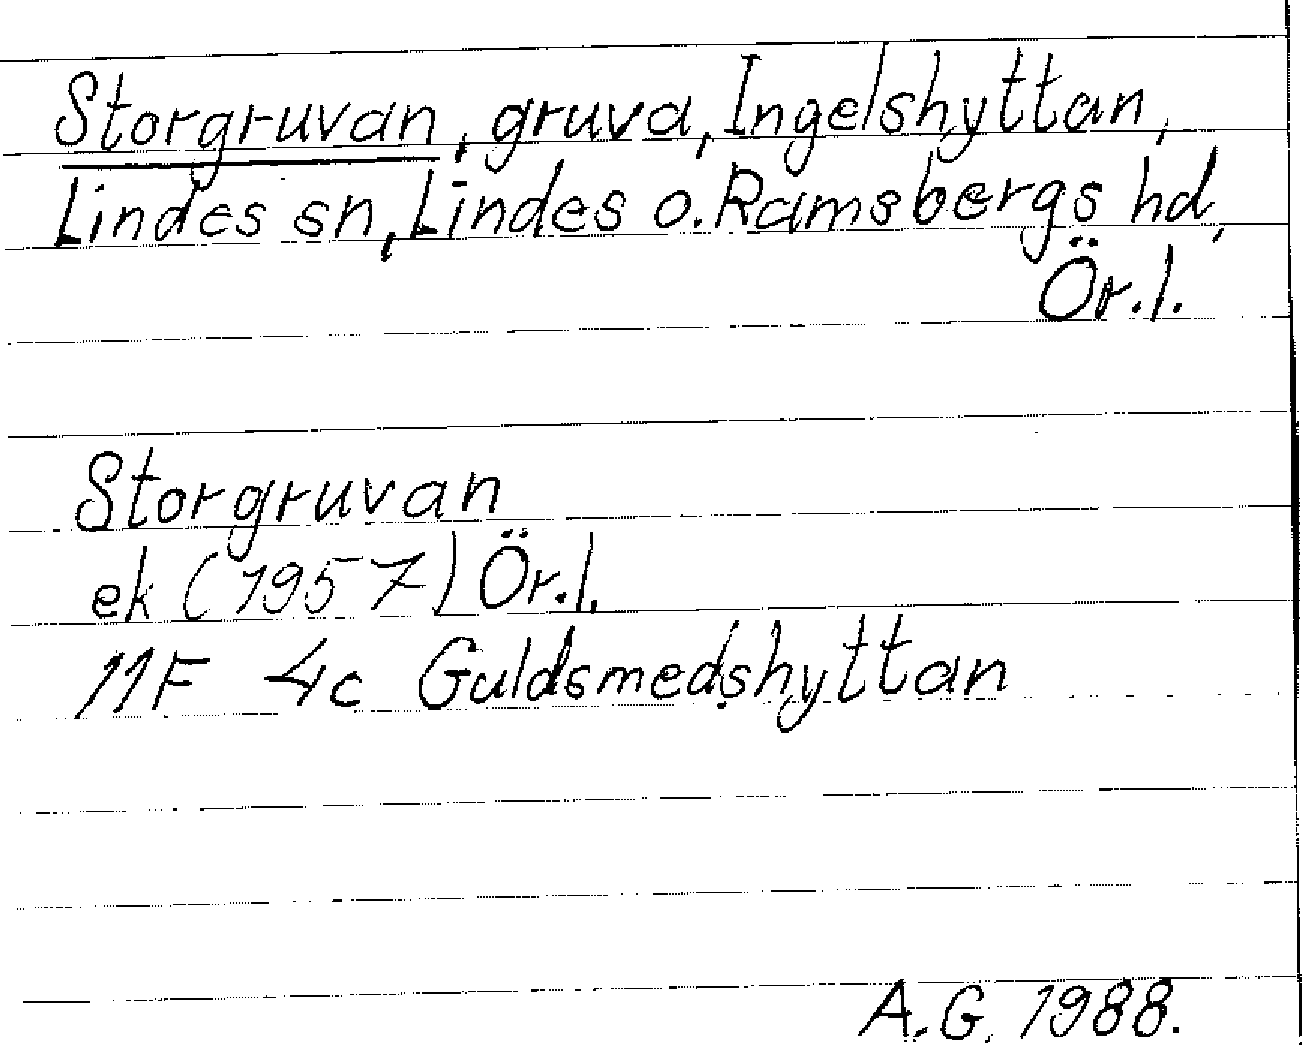 Storgruvan, gruva, Ingelshyttan,
Lindes sn, Lindes o. Ramsbergs hd,
Ör.l.
Storgruvan
ek (1957) Ör.l.
11F 4c Guldsmedshyttan
A.G. 1988.